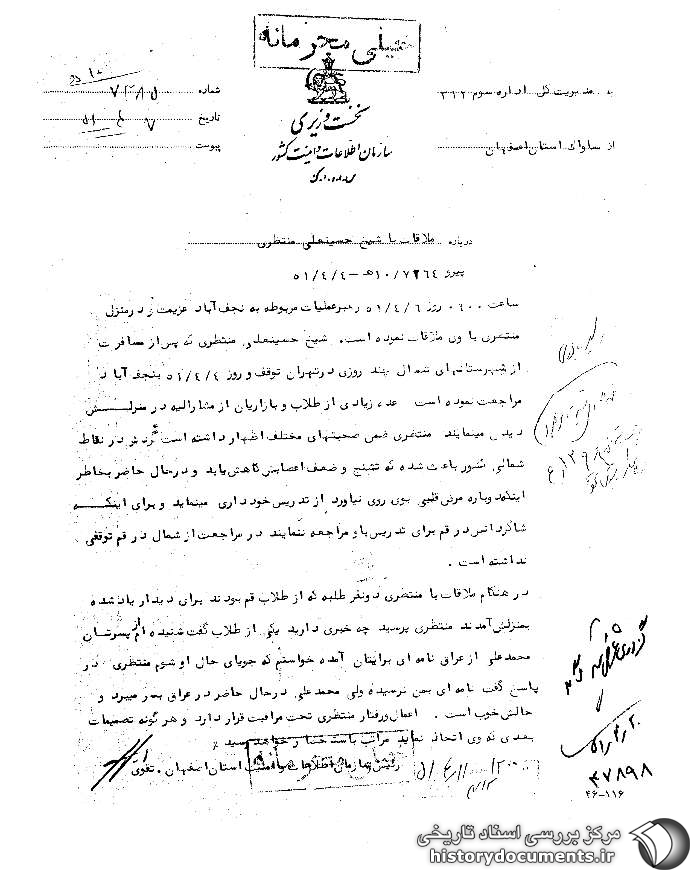 خیلی محرمانه
نخست وزیری
سازمان اطلاعات و امنیت کشور
به مدیریت کل اداره سوم ۳۱۲
از ساواک استان اصفهان
شماره
تاریخ ۵۱/۴/۷
پیوست
درباره ملاقات با شیخ حسینعلی منتظری
پیرو ۱۰/۷۲۶۴ه‍ – ۵۱/۴/۴
ساعت ۰۶۰۰ روز ۵۱/۴/۶ رهبر عملیات مربوطه به نجف آباد عزیمت و در منزل
منتظری با وی ملاقات نموده است. شیخ حسینعلی منتظری که پس از مسافرت
از شهرستانهای شمال چند روزی در تهران توقف و روز ۵۱/۴/۴ بنجف آباد
مراجعت نموده است عده زیادی از طلاب و بازاریان از مشارالیه در منزلش
دیدن مینمایند منتظری ضمن صحبتهای مختلف اظهار داشته است گردش در نقاط
شمالی کشور باعث شده که تشنج و ضعف اعصابش کاهش یابد و در حال حاضر بخاطر
اینکه دوباره مرض قلبی بوی روی نیاورد از تدریس خودداری مینماید و برای اینکه
شاگردانش در قم برای تدریس باو مراجعه ننمایند در مراجعت از شمال در قم توقفی
نداشته است.
در هنگام ملاقات با منتظری دو نفر طلبه که از طلاب قم بودند برای دیدار یاد شده
بمنزلش آمدند منتظری پرسید چه خبری دارید یکی از طلاب گفت شنیده ام از پسرتان
محمدعلی از عراق نامه ای برایتان آمده خواستم که جویای حال او شوم منتظری در
پاسخ گفت نامه ای بمن نرسیده ولی محمدعلی در حال حاضر در عراق بسر میبرد و
حالش خوب است. اعمال و رفتار منتظری تحت مراقبت قرار دارد و هر گونه تصمیمات
بعدی که وی اتخاذ نماید مراتب باستحضار خواهد رسید٪
رئیس سازمان اطلاعات و امنیت استان اصفهان. تقوی
۴۷۸۹۸
۴۶-۱۱۶
مرکز بررسی اسناد تاریخی
historydocuments.ir